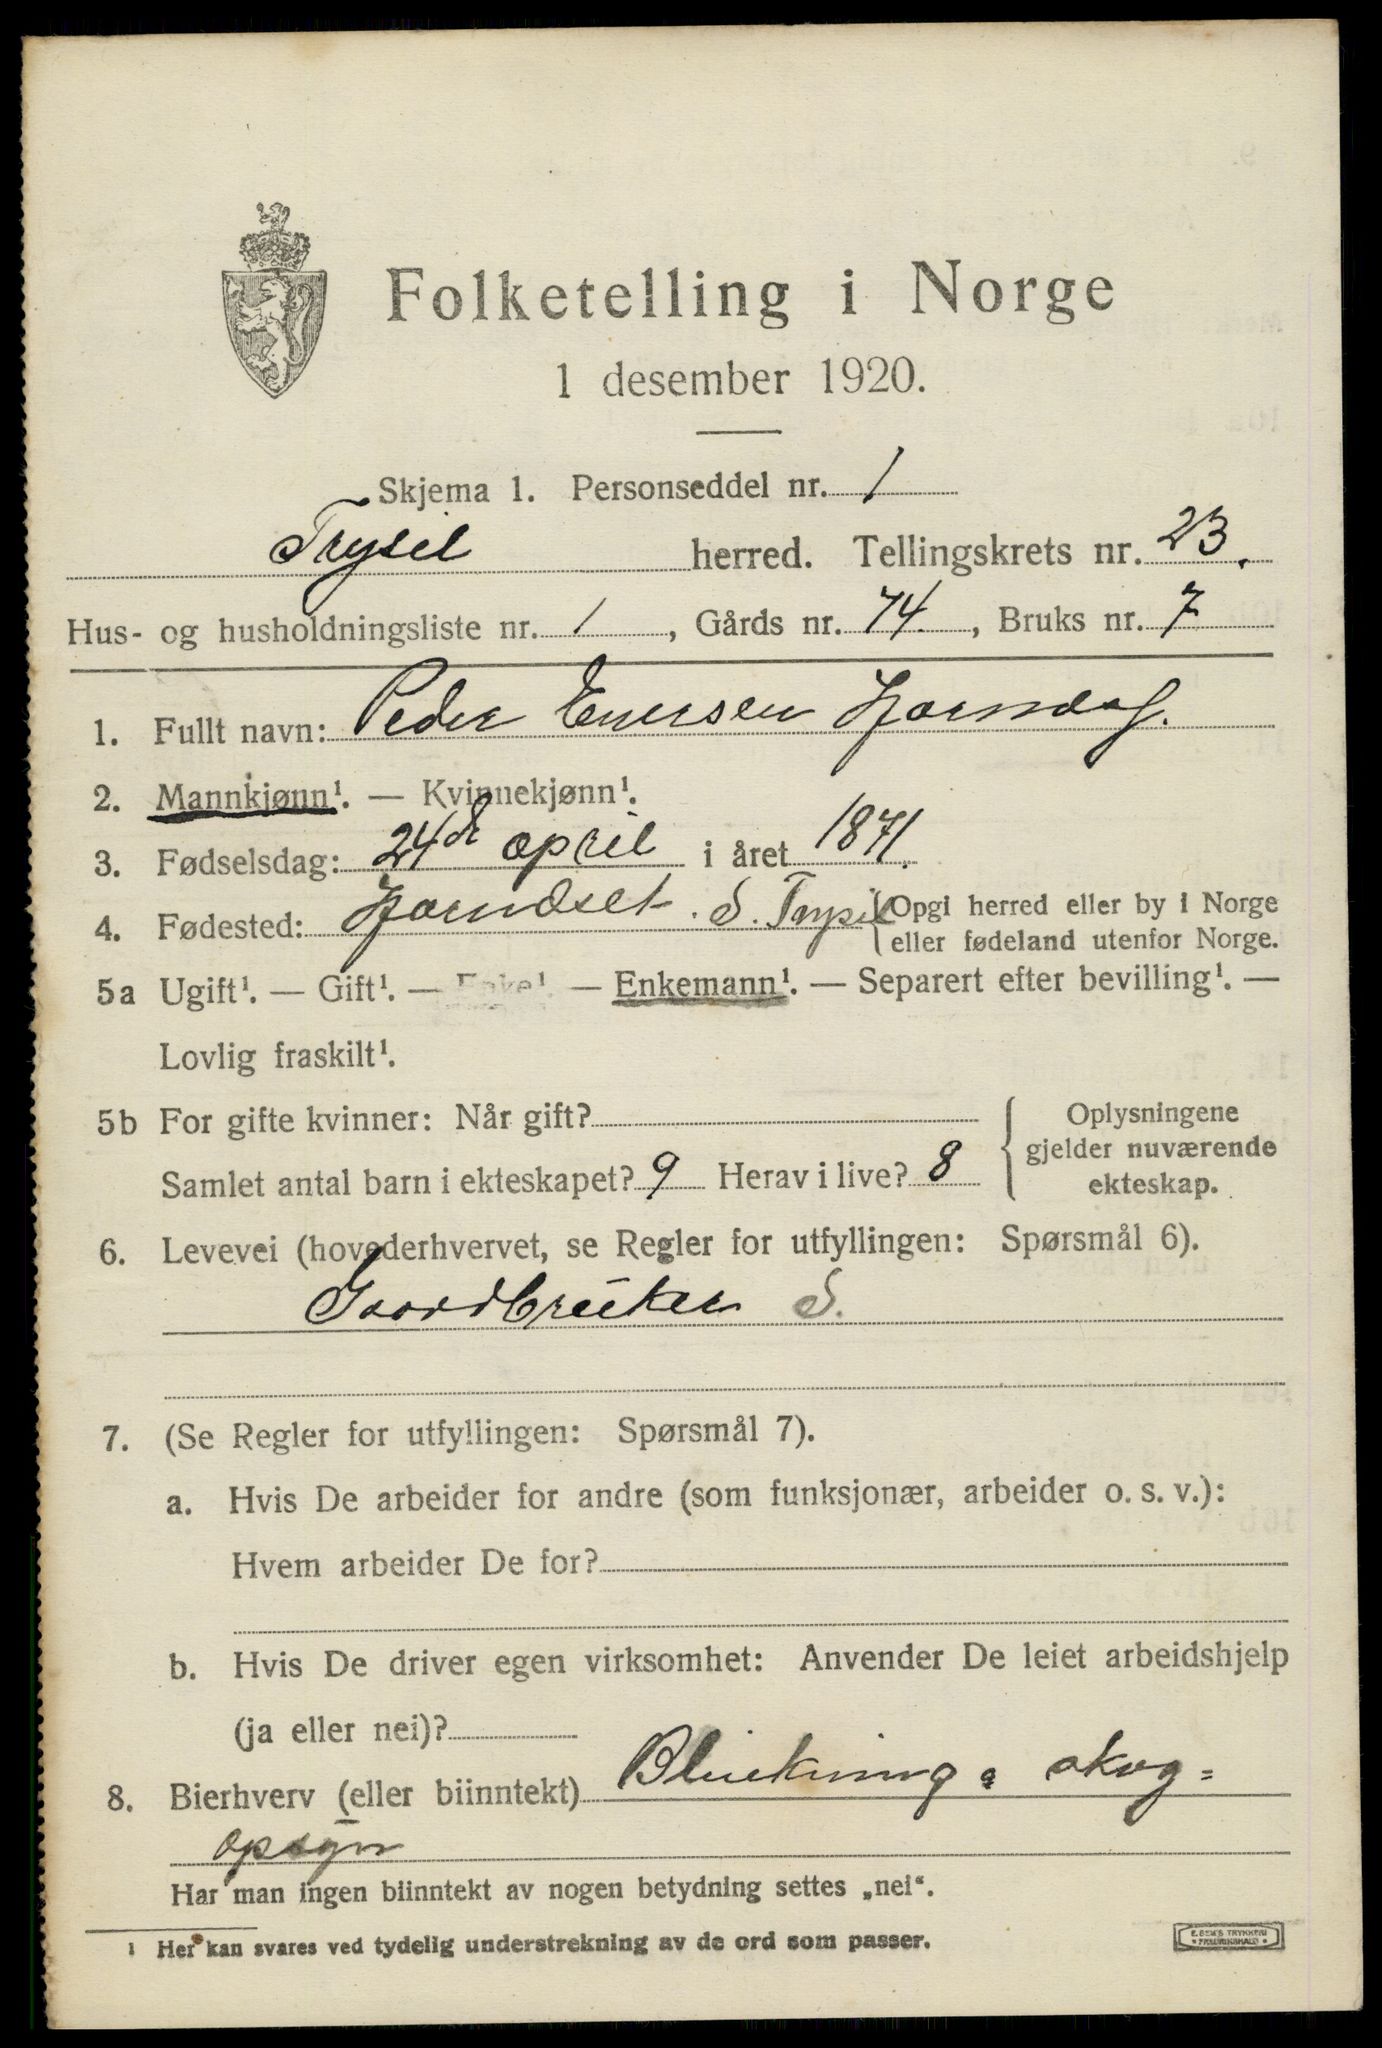 Folketelling i Norge
1 desember 1920.
Skjema 1. Personseddel nr. 1
Trysil herred. Tellingskrets nr. 23.
Hus- og husholdningsliste nr. 1, Gårds nr. 74, Bruks nr. 7
1. Fullt navn: Peder Enersen
2. Mannkjønn¹. — Kvinnekjønn¹.
3. Fødselsdag: 24de april i året 1871.
4. Fødested: Jjorndset. S. Trysil {Opgi herred eller by i Norge
eller fødeland utenfor Norge.
5a Ugift¹. — Gift¹. — Enke¹. — Enkemann¹. — Separert efter bevilling¹. —
Lovlig fraskilt¹.
5b For gifte kvinner: Når gift?
Samlet antal barn i ekteskapet? 9 Herav i live? 8
{ Oplysningene
gjelder nuværende
ekteskap.
6. Levevei (hovederhvervet, se Regler for utfyllingen: Spørsmål 6).
Gaardbruker S.
7. (Se Regler for utfyllingen: Spørsmål 7).
a. Hvis De arbeider for andre (som funksjonær, arbeider o. s. v.):
Hvem arbeider De for?
b. Hvis De driver egen virksomhet: Anvender De leiet arbeidshjelp
(ja eller nei)?
8. Bierhverv (eller biinntekt) Blinkning, skog=
opsyn
Har man ingen biinntekt av nogen betydning settes „nei“.
¹ Her kan svares ved tydelig understrekning av de ord som passer.
E. SEM'S TRYKKERI
* FREDRIKSHALD *